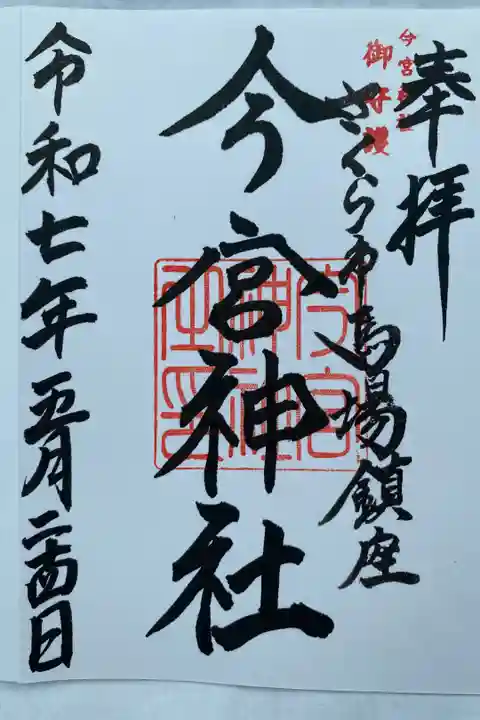 奉拝
今宮神社
御守護
さくら市馬場鎮座
今宮神社
令和七年五月二十四日